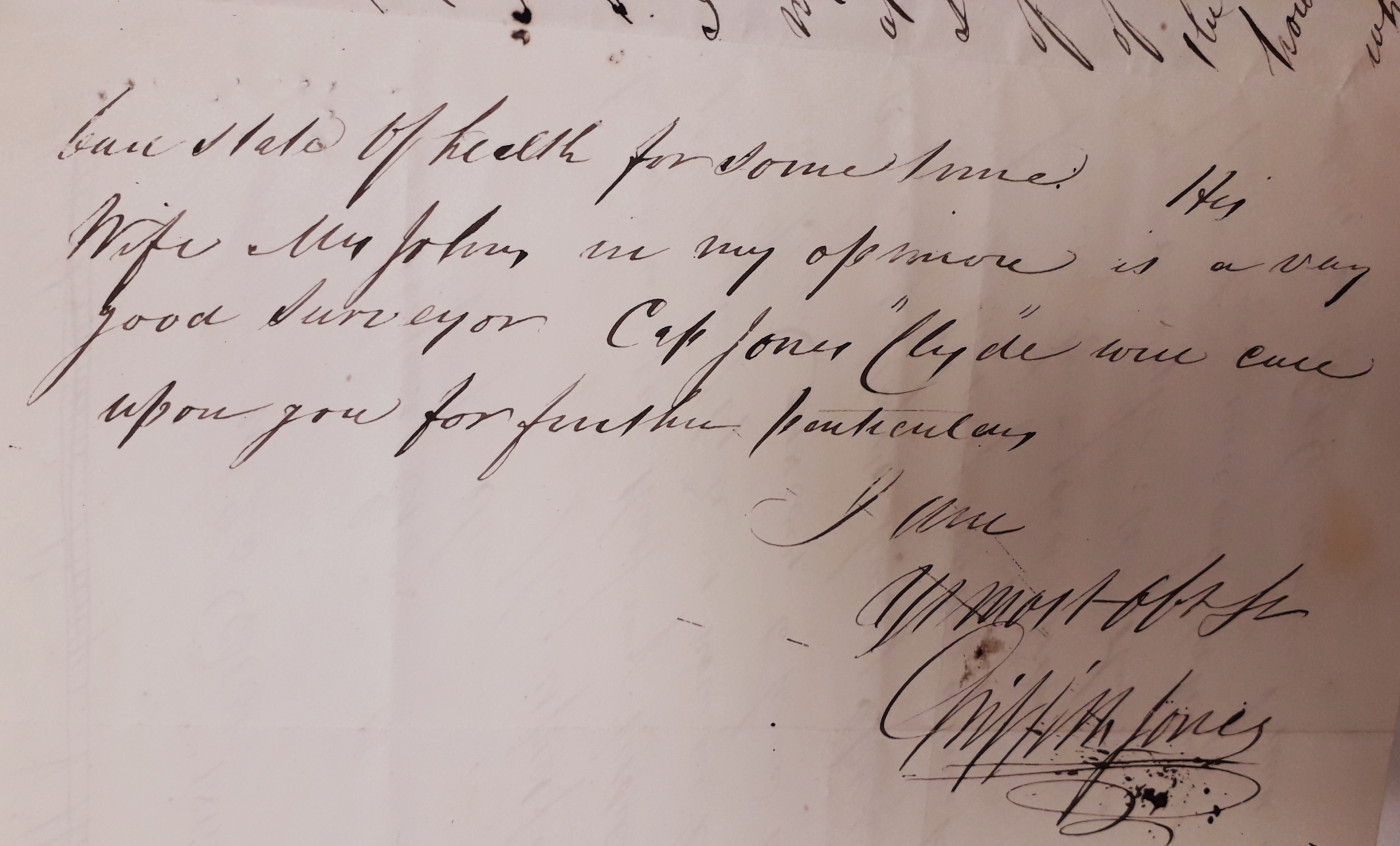 state of health for some time. His
Wife Mrs Johns in my opinion is a very
good surveyor Cap Jones "Clyde" will call
upon you for further particulars
I am
Yr most obt St
Griffith Jones